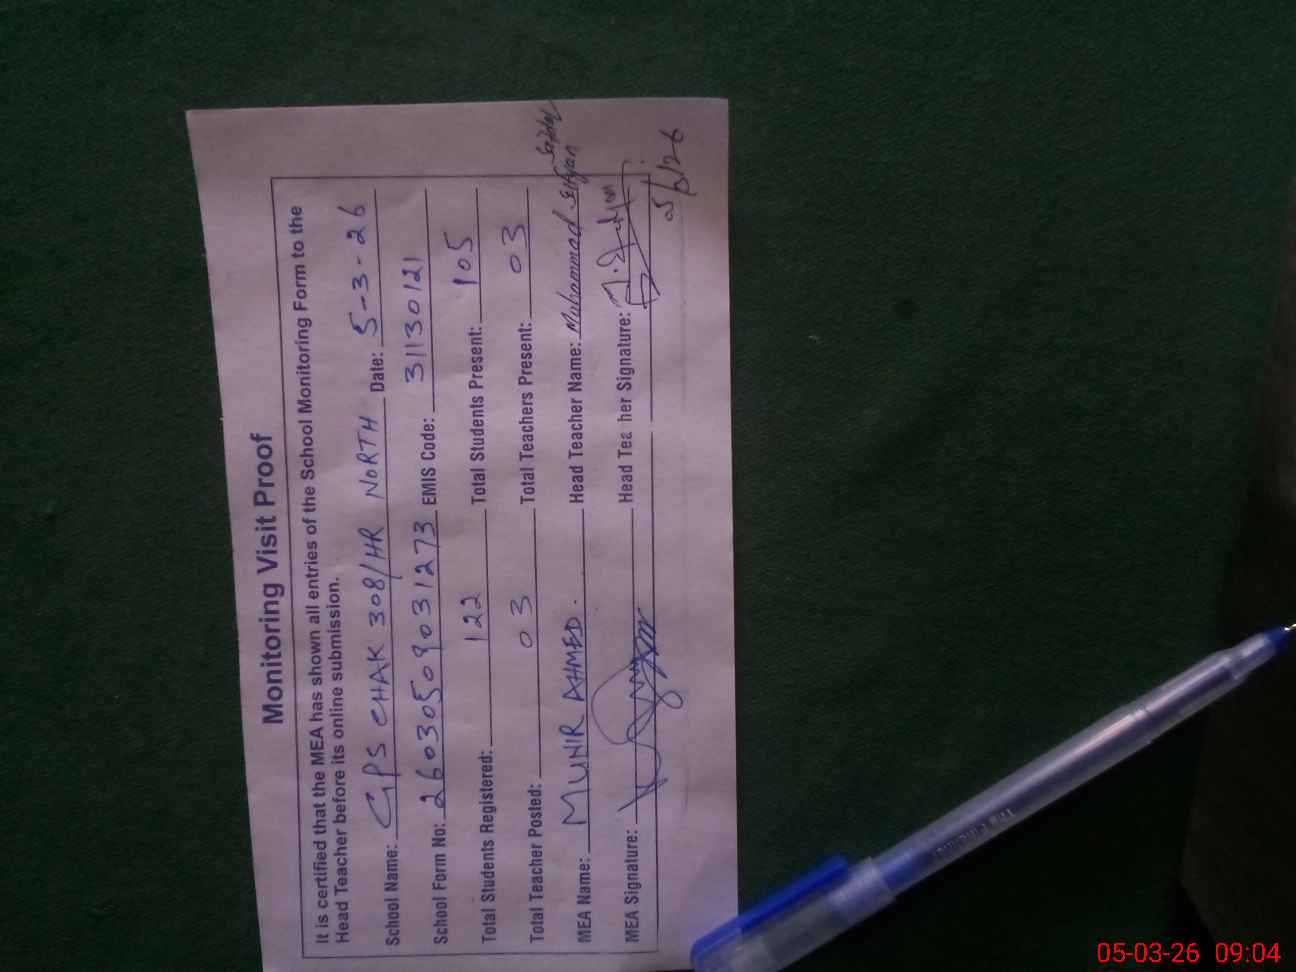 Monitoring Visit Proof
It is certified that the MEA has shown all entries of the School Monitoring Form to the
Head Teacher before its online submission.
School Name: GPS CHAK 308/HR NORTH Date: 5-3-26
School Form No: 26030509031273 EMIS Code: 31130121
Total Students Registered: 122 Total Students Present: 105
Total Teacher Posted: 03 Total Teachers Present: 03
MEA Name: MUNIR AHMED. Head Teacher Name: Muhammad Irfan
MEA Signature: Head Teacher Signature:
05/3/26
05-03-26 09:04